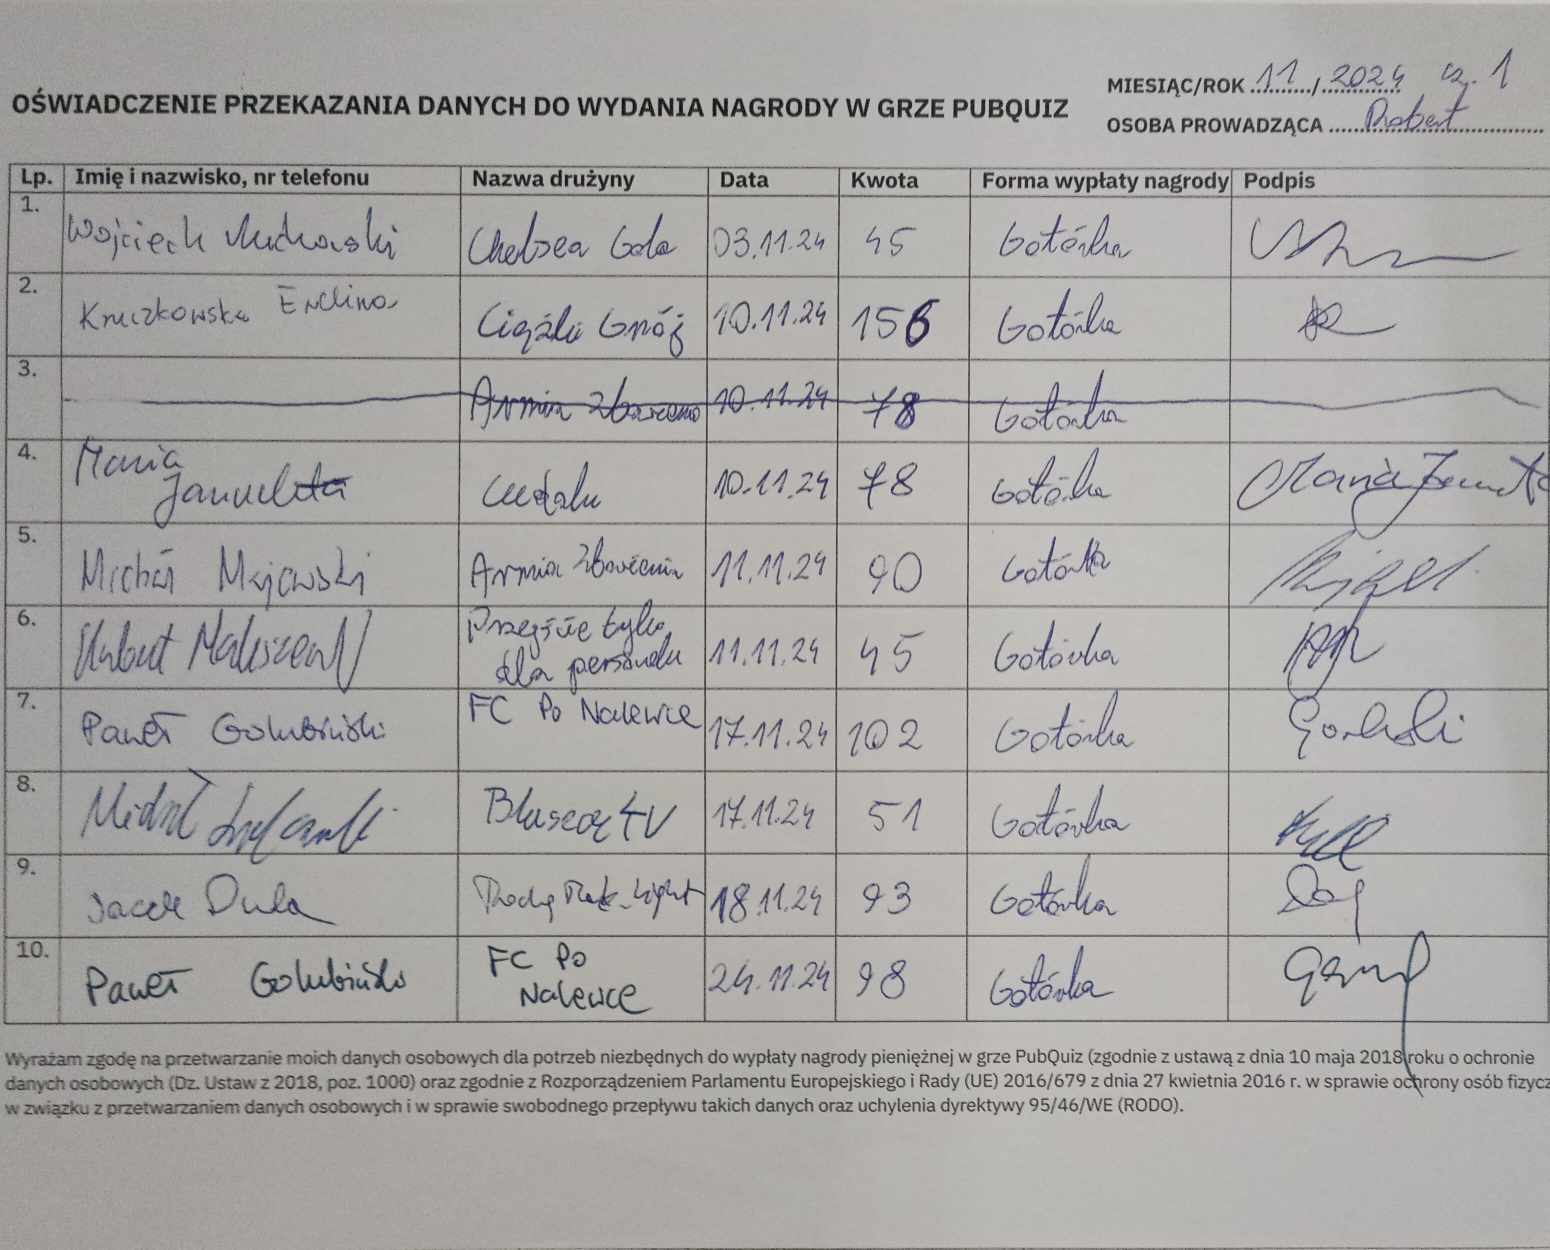 MIESIĄC/ROK 11 / 2024 cz. 1
OŚWIADCZENIE PRZEKAZANIA DANYCH DO WYDANIA NAGRODY W GRZE PUBQUIZ
OSOBA PROWADZĄCA Robert
Lp. Imię i nazwisko, nr telefonu Nazwa drużyny Data Kwota Forma wypłaty nagrody Podpis
1. Wojciech Chelsea Gola 03.11.24 45 Gotówka
2. Kruczkowska Ewelina Ciężki Gnój 10.11.24 156 Gotówka
3. Armia Zbawienia 10.11.24 78 Gotówka
4. Maria 10.11.24 78 Gotówka
5. Michał Majewski Armia Zbawienia 11.11.24 90 Gotówka
6. Hubert Przejście tylko
dla personelu 11.11.24 45 Gotówka
7. Paweł Golubiński FC Po Nalewce 17.11.24 102 Gotówka
8. Michał 17.11.24 51 Gotówka
9. Jacek Dula 18.11.24 93 Gotówka
10. Paweł Golubiński FC Po
Nalewce 24.11.24 98 Gotówka
Wyrażam zgodę na przetwarzanie moich danych osobowych dla potrzeb niezbędnych do wypłaty nagrody pieniężnej w grze PubQuiz (zgodnie z ustawą z dnia 10 maja 2018 roku o ochronie
danych osobowych (Dz. Ustaw z 2018, poz. 1000) oraz zgodnie z Rozporządzeniem Parlamentu Europejskiego i Rady (UE) 2016/679 z dnia 27 kwietnia 2016 r. w sprawie ochrony osób fizycz
w związku z przetwarzaniem danych osobowych i w sprawie swobodnego przepływu takich danych oraz uchylenia dyrektywy 95/46/WE (RODO).